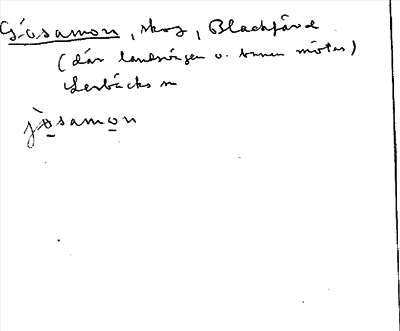 Gjosamon, skog, Blackfjärd
(där landsvägen o. banan mötas)
Lerbäcks sn
jòsamon